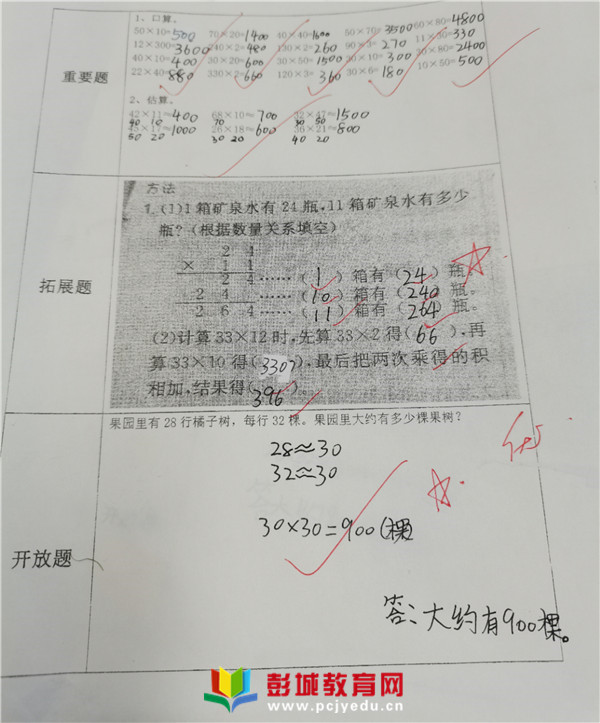 1、口算。
50×10=500 70×20=1400 40×40=1600 50×70=3500 60×80=4800
12×300=3600 240×2=480 130×2=260 90×3=270 11×30=330
40×10=400 30×20=600 30×50=1500 30×10=300 30×80=2400
22×40=880 330×2=660 120×3=360 30×6=180 10×50=500
重要题
2、估算。
42×11≈400 68×10≈700 32×47≈1500
40 10 70 30 50
45×17≈1000 26×18≈600 36×21≈800
50 20 30 20 40 20
方法
1.(1)1箱矿泉水有24瓶,11箱矿泉水有多少
瓶?(根据数量关系填空)
2 4
× 1 1
2 4……(1)箱有(24)瓶。
2 4 ……(10)箱有(240)瓶。
2 6 4……(11)箱有(264)瓶。
拓展题
(2)计算33×12时,先算33×2得(66),再
算33×10得(330),最后把两次乘得的积
相加,结果得(396)。
果园里有28行橘子树,每行32棵。果园里大约有多少棵果树?
28≈30
32≈30
30×30=900(棵)
开放题
答:大约有900棵。
彭城教育网
www.pcjyedu.cn